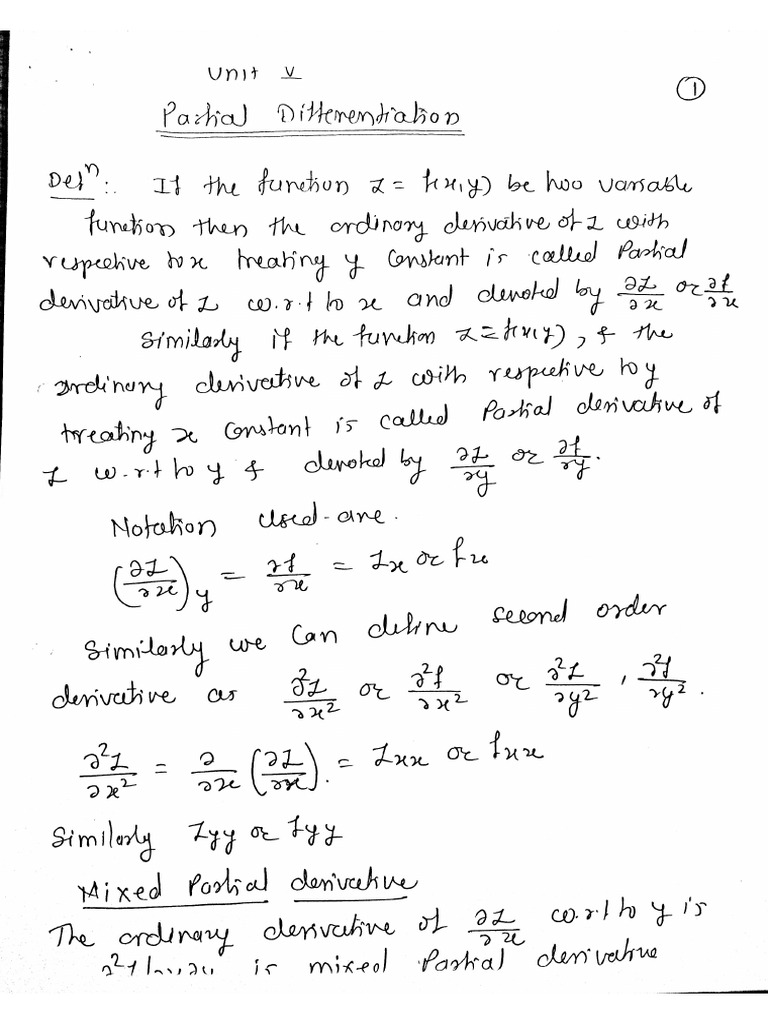 Unit V
①
Partial Differentiation
Defⁿ:. If the function z = f(x,y) be two variable
function then the ordinary derivative of z with
respective to x treating y constant is called Partial
derivative of z w.r.t to x and denoted by ∂z/∂x or ∂f/∂x
Similarly if the function z = f(x,y), & the
ordinary derivative of z with respective to y
treating x constant is called Partial derivative of
z w.r.t to y & denoted by ∂z/∂y or ∂f/∂y.
Notation used are.
(∂z/∂x)y = ∂f/∂x = zx or fx
Similarly we can define second order
derivative as ∂²z/∂x² or ∂²f/∂x² or ∂²z/∂y² , ∂²f/∂y².
∂²z/∂x² = ∂/∂x (∂z/∂x). = zxx or fxx
Similarly zyy or fyy
Mixed Partial derivative
The ordinary derivative of ∂z/∂x w.r.t to y is
is mixed Partial derivative